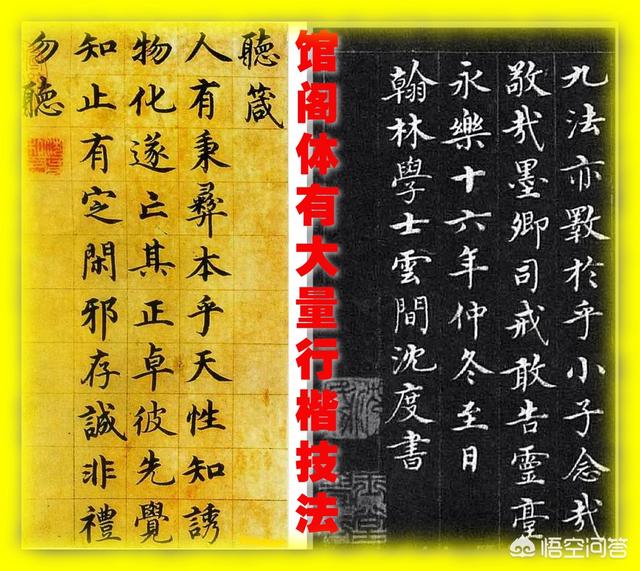 聽箴
人有秉彝本乎天性知誘
物化遂亡其正卓彼先覺
知止有定閑邪存誠非禮
勿聽
馆阁体有大量行楷技法
九法亦斁於乎小子念哉
敬哉墨卿司戒敢告靈臺
永樂十六年仲冬至日
翰林學士雲間沈度書
悟空问答